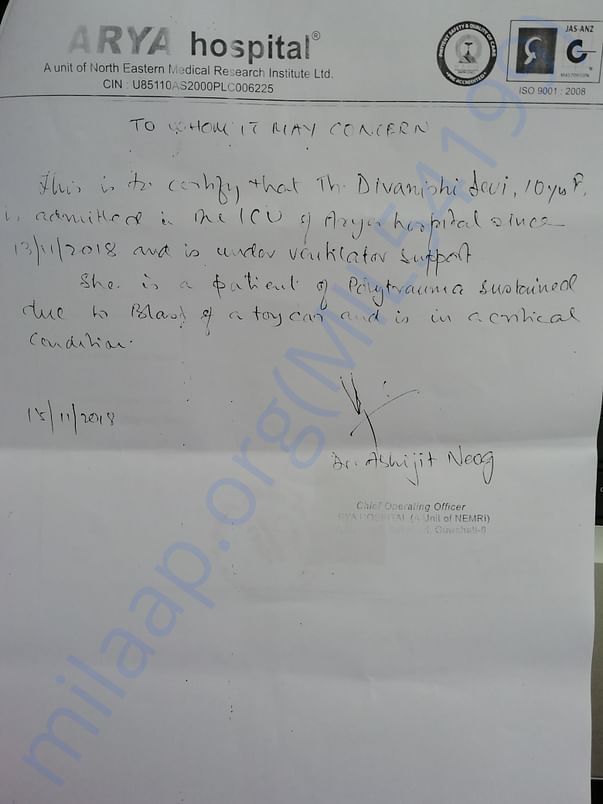 ARYA hospital®
A unit of North Eastern Medical Research Institute Ltd.
CIN : U85110AS2000PLC006225
PATIENT SAFETY & QUALITY OF CARE
JAS-ANZ
ISO 9001 : 2008
TO WHOM IT MAY CONCERN
This is to certify that Th. Divanishi Devi, 10 yrs F,
is admitted in the ICU of Arya hospital since
13/11/2018 and is under ventilator support
She is a patient of Polytrauma sustained
due to Blast of a toy car and is in a critical
condition.
15/11/2018
Dr. Abhijit Neog
Chief Operating Officer
ARYA HOSPITAL (A Unit of NEMRI)
Guwahati-8
milaap.org(MIL5419